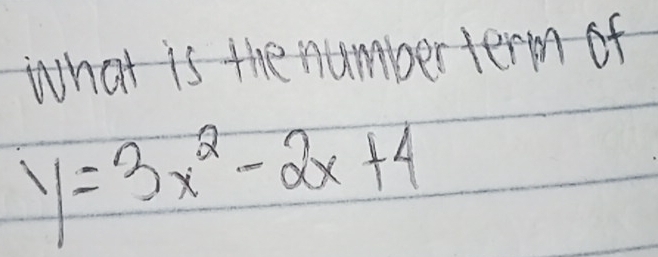 What is the number term of
y = 3x² - 2x + 4